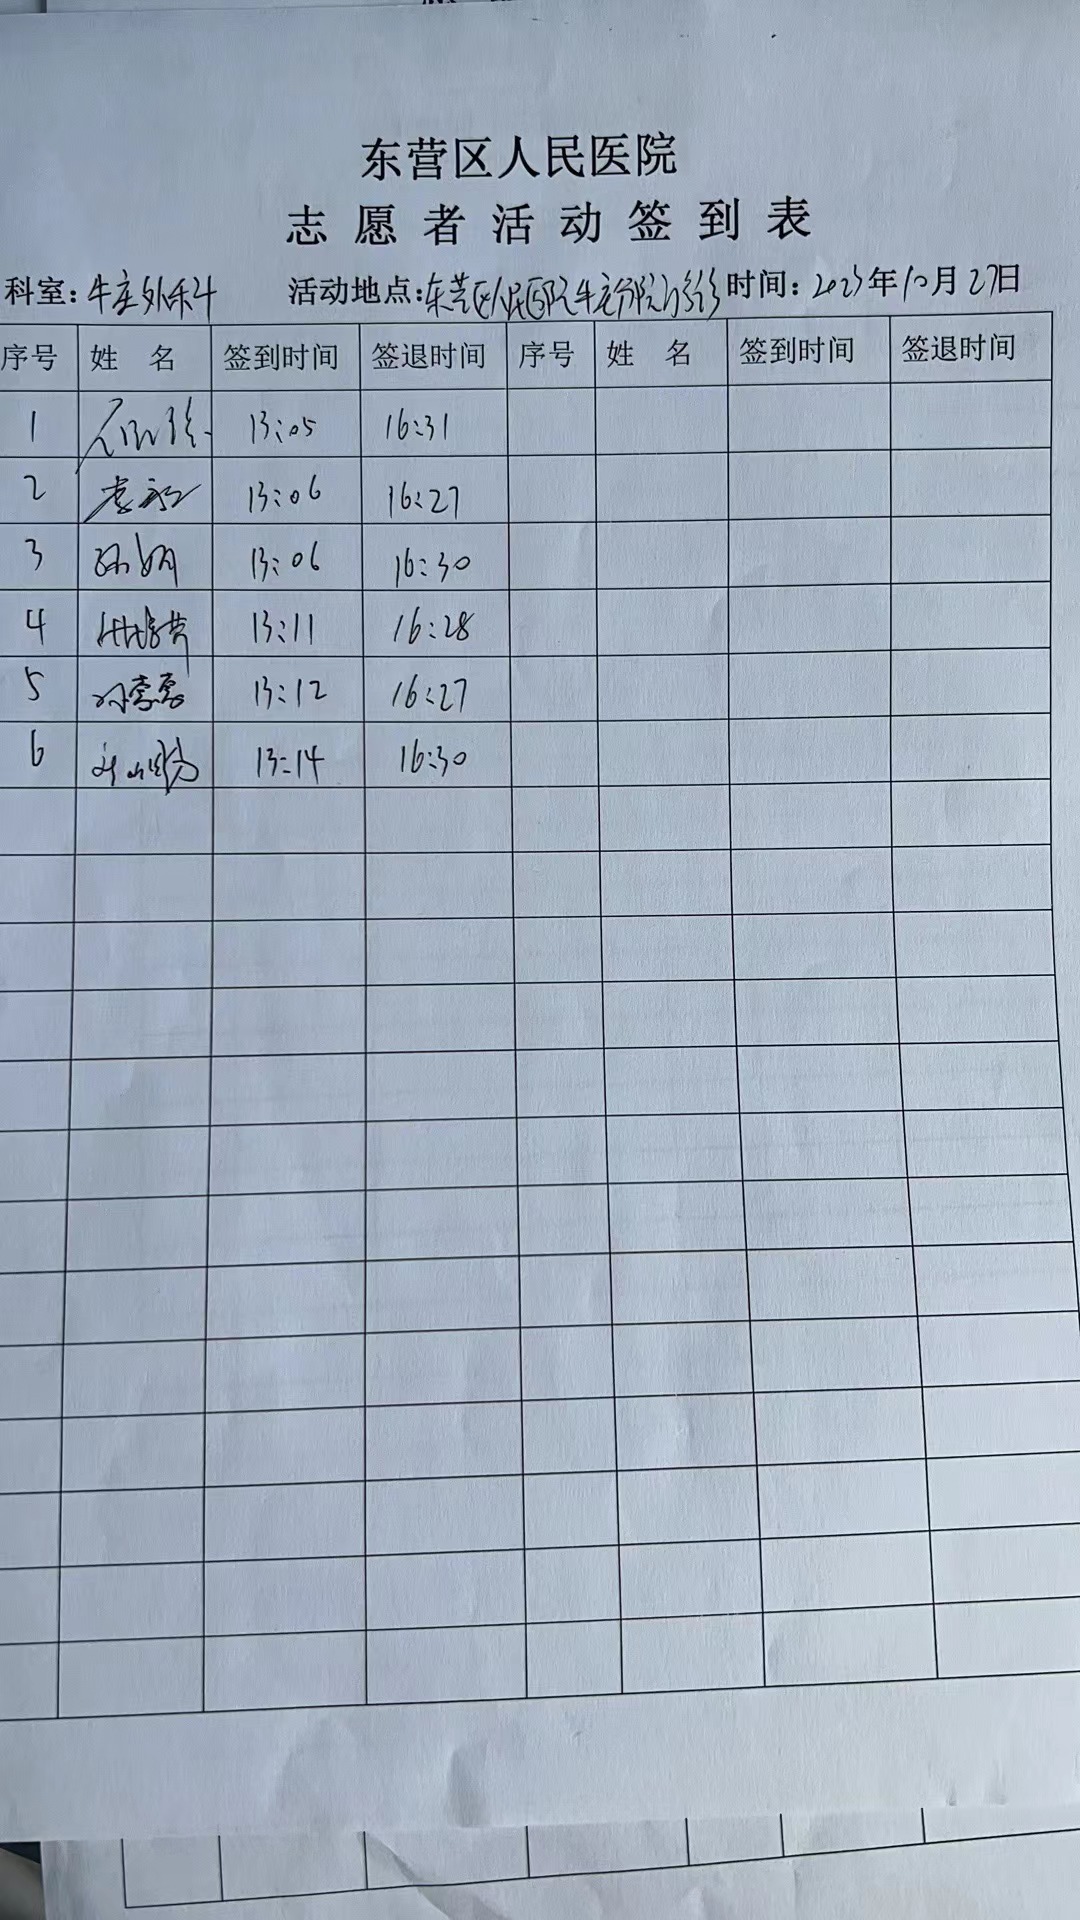 东营区人民医院
志愿者活动签到表
科室:牛庄外科 活动地点:东营区人民医院牛庄分院门诊 时间:2023年10月27日
序号 姓名 签到时间 签退时间 序号 姓名 签到时间 签退时间
1 13:05 16:31
2 13:06 16:27
3 13:06 16:30
4 13:11 16:28
5 13:12 16:27
6 13:14 16:30